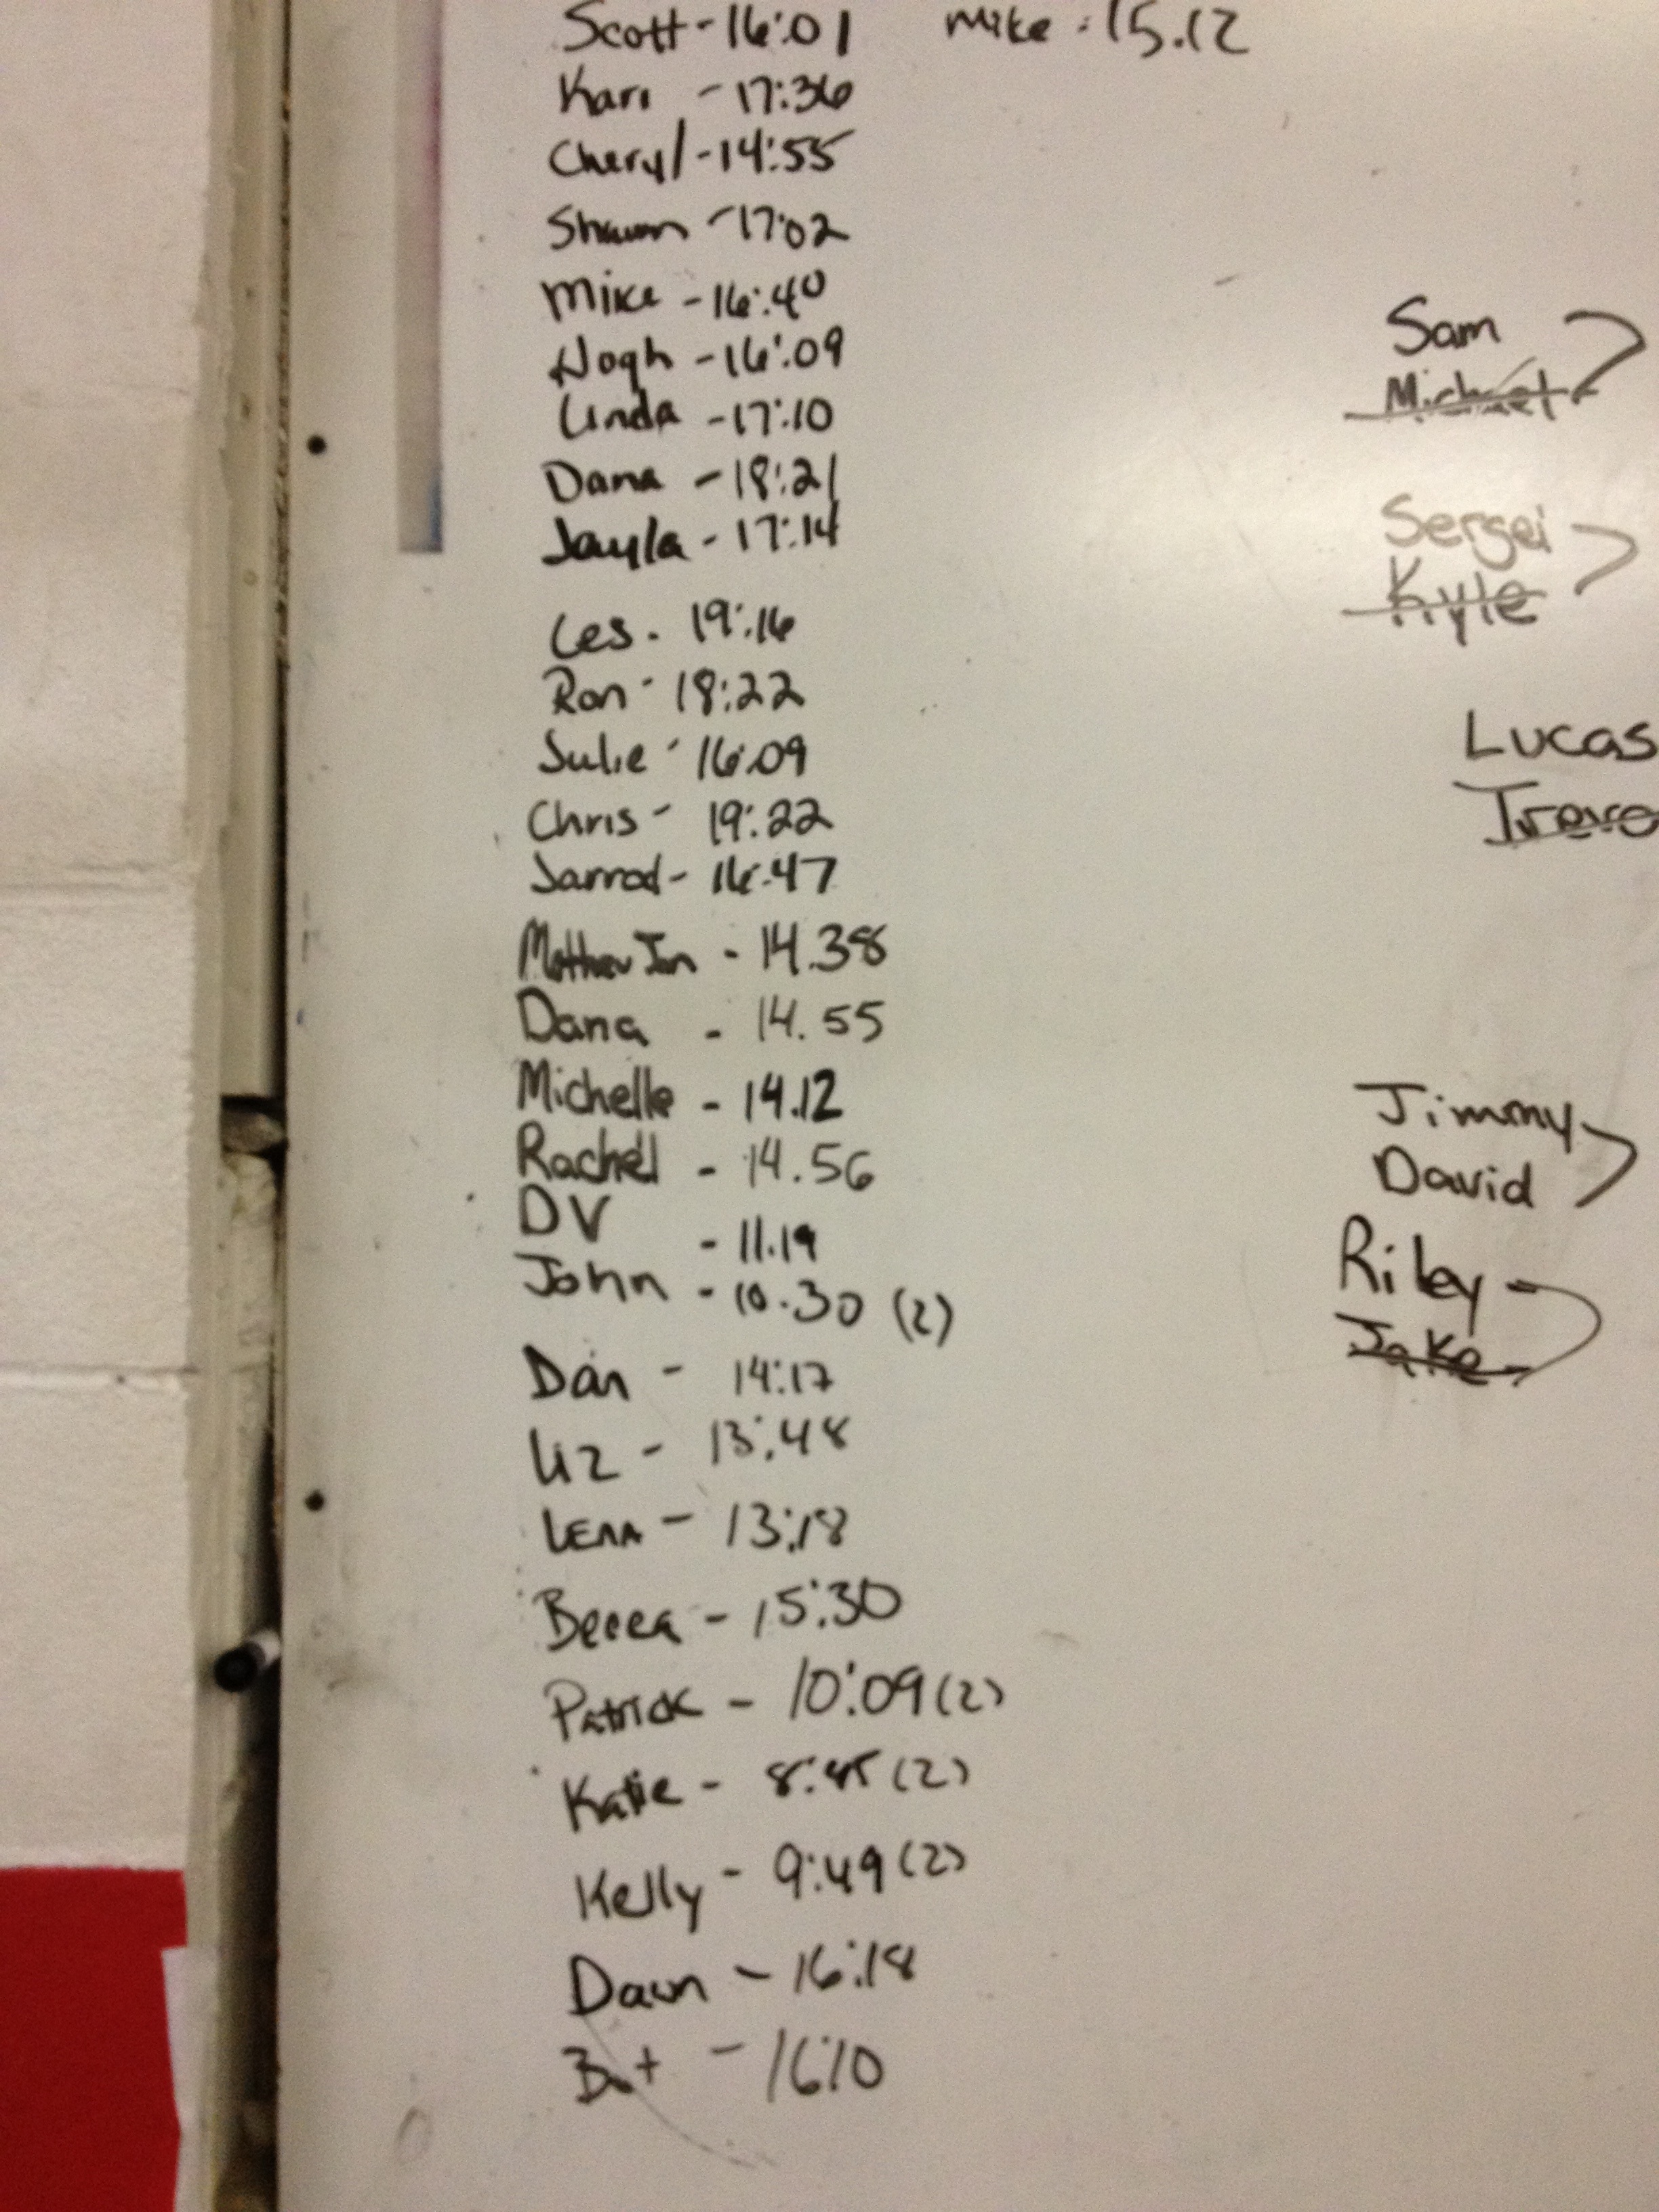 Scott - 16:01 Mike : 15.12
Kari - 17:36
Cheryl - 14:55
Shawn - 17:02
Mike - 16:40
- 16:09
Linda - 17:10
Dana - 18:21
Jayla - 17:14
Les - 19:16
Ron - 18:22
Julie - 16:09
Chris - 19:22
Jarrod - 16:47
Matthew Jon - 14.38
Dana - 14.55
Michelle - 14.12
Rachel - 14.56
DV - 11.19
John - 10.30 (2)
Dan - 14:17
Liz - 13:48
LENA - 13:18
Becca - 15:30
Patrick - 10:09 (2)
Katie - 8:45 (2)
Kelly - 9:49 (2)
Dawn - 16:18
- 16:10
Sam
Michael
Sergei
Kyle
Lucas
Trevo
Jimmy
David
Riley
Jake